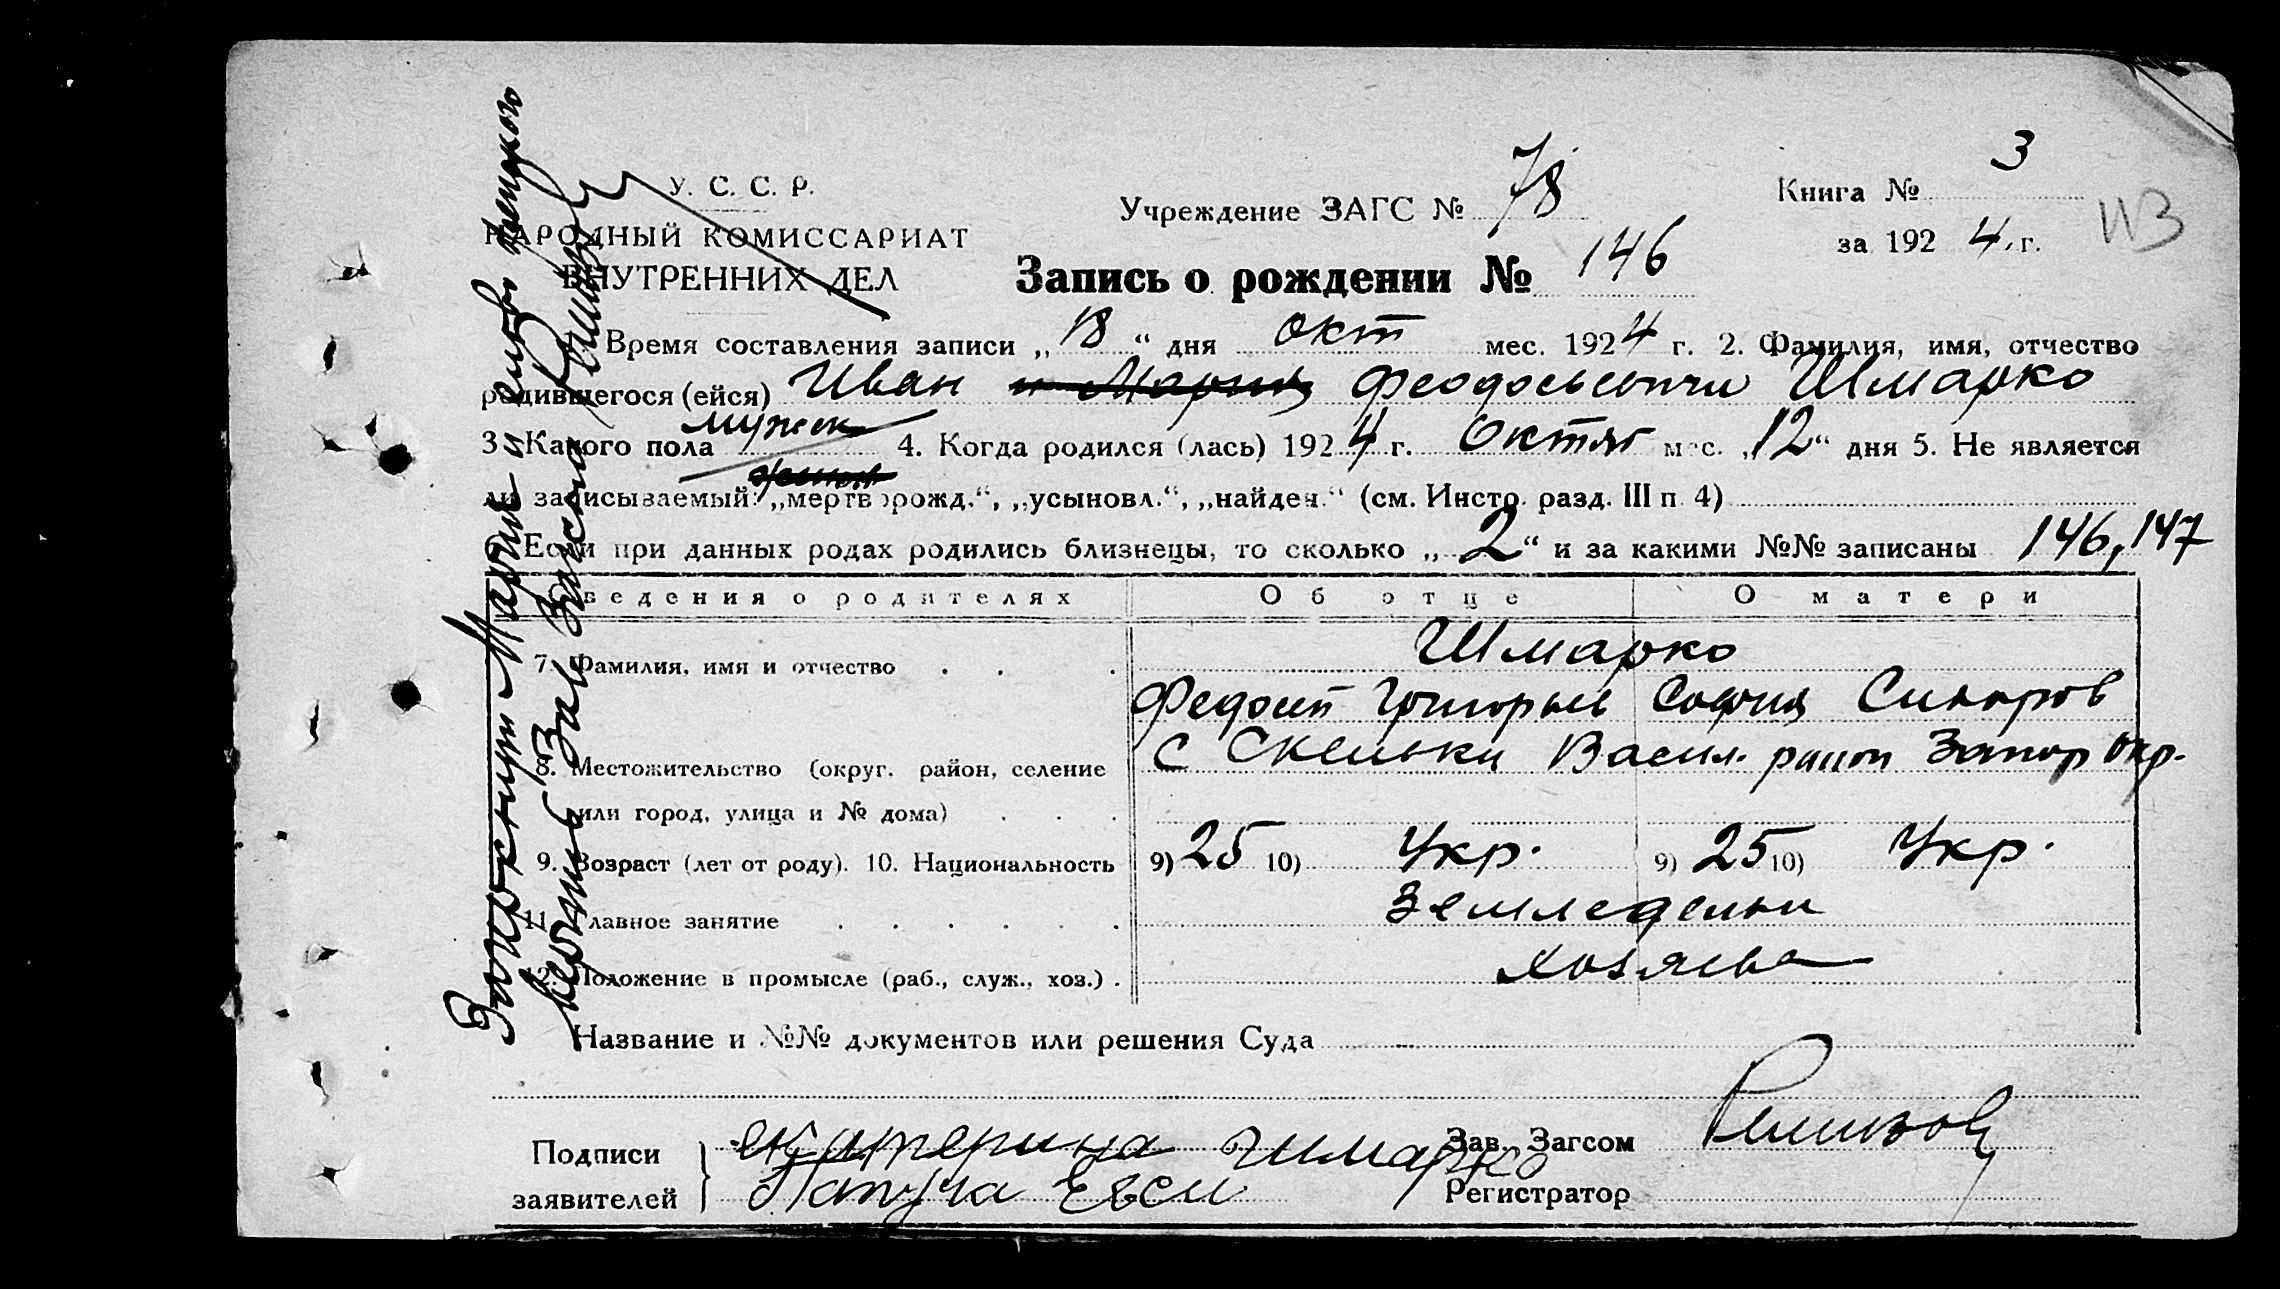 У. С. С. Р.
НАРОДНЫЙ КОМИССАРИАТ
ВНУТРЕННИХ ДЕЛ
Учреждение ЗАГС № 78
Книга № 3
за 1924 г.
Запись о рождении № 146
Время составления записи „18“ дня окт мес. 1924 г. 2. Фамилия, имя, отчество
родившегося (ейся) Иван и Мария Феодосьевичи Шмарко
3. Какого пола мужск 4. Когда родился (лась) 1924 г. Октяб мес. „12“ дня 5. Не является
женск
ли записываемый: „мертворожд.“, „усыновл.“, „найден.“ (см. Инстр. разд. III п. 4)
Если при данных родах родились близнецы, то сколько „2“ и за какими №№ записаны 146, 147
Сведения о родителях Об отце О матери
Шмарко
7. Фамилия, имя и отчество
Федосий Григорьев София
С Скельки Васил. район Запор окр.
8. Местожительство (округ. район, селение
или город, улица и № дома)
9. Возраст (лет от роду). 10. Национальность 9) 25 10) Укр. 9) 25 10) Укр.
11. Главное занятие Земледельцы
12. Положение в промысле (раб., служ., хоз.) хозяева
Название и №№ документов или решения Суда –
Подписи
заявителей
Екатерина Шмарко
Евси
Зав. Загсом
Регистратор
Зачеркнуто Мария и слово женского
верить Зав Загсом